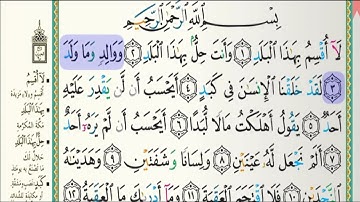 بِسْمِ ٱللَّهِ ٱلرَّحْمَٰنِ ٱلرَّحِيمِ
لَآ أُقْسِمُ بِهَٰذَا ٱلْبَلَدِ ١ وَأَنتَ حِلٌّۢ بِهَٰذَا ٱلْبَلَدِ ٢ وَوَالِدٍ وَمَا وَلَدَ
٣ لَقَدْ خَلَقْنَا ٱلْإِنسَٰنَ فِى كَبَدٍ ٤ أَيَحْسَبُ أَن لَّن يَقْدِرَ عَلَيْهِ
أَحَدٌ ٥ يَقُولُ أَهْلَكْتُ مَالًا لُّبَدًا ٦ أَيَحْسَبُ أَن لَّمْ يَرَهُۥٓ أَحَدٌ
٧ أَلَمْ نَجْعَل لَّهُۥ عَيْنَيْنِ ٨ وَلِسَانًا وَشَفَتَيْنِ ٩ وَهَدَيْنَٰهُ
ٱلنَّجْدَيْنِ ١٠ فَلَا ٱقْتَحَمَ ٱلْعَقَبَةَ ١١ وَمَآ أَدْرَىٰكَ مَا ٱلْعَقَبَةُ ١٢
لَا أُقْسِمُ
بِهَٰذَا الْبَلَدِ
مكة المكرمة